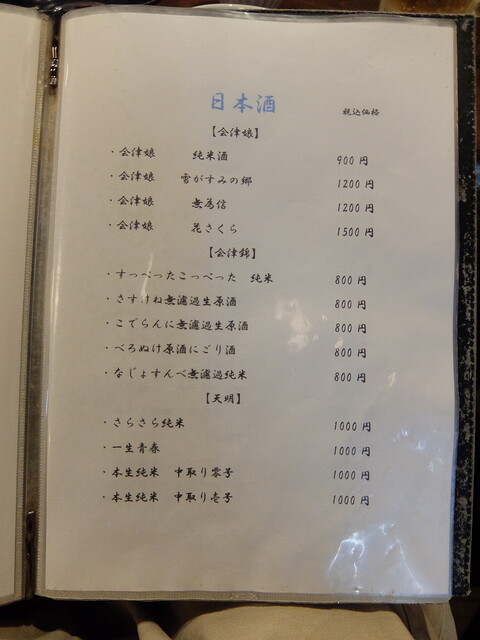 日本酒
税込価格
【会津娘】
・会津娘 純米酒 900円
・会津娘 雪がすみの郷 1200円
・会津娘 無為信 1200円
・会津娘 花さくら 1500円
【会津錦】
・すっぺったこっぺった 純米 800円
・さすけね無濾過生原酒 800円
・こでらんに無濾過生原酒 800円
・べろぬけ原酒にごり酒 800円
・なじょすんべ無濾過純米 800円
【天明】
・さらさら純米 1000円
・一生青春 1000円
・本生純米 中取り零号 1000円
・本生純米 中取り壱号 1000円